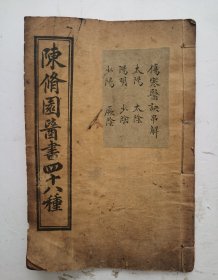 陳脩園醫書四十八種
傷寒醫訣串解
太陽 太陰
陽明 少陰
少陽 厥陰